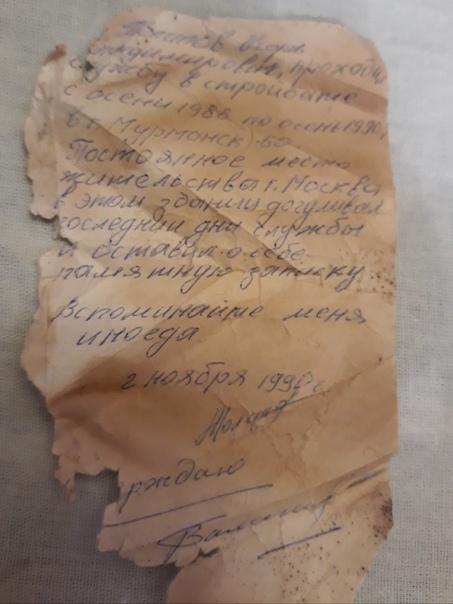 ладимирович, проходил
службу в стройбате
с осени 1988 по осень 1990г
в г. Мурманск-60
Постоянное место
жительства г. Москва
в этом здании догуливал
последнии дни службы
и оставил о себе
памятную записку.
Вспоминайте меня
иногда
2 ноября 1990 г.
рждаю